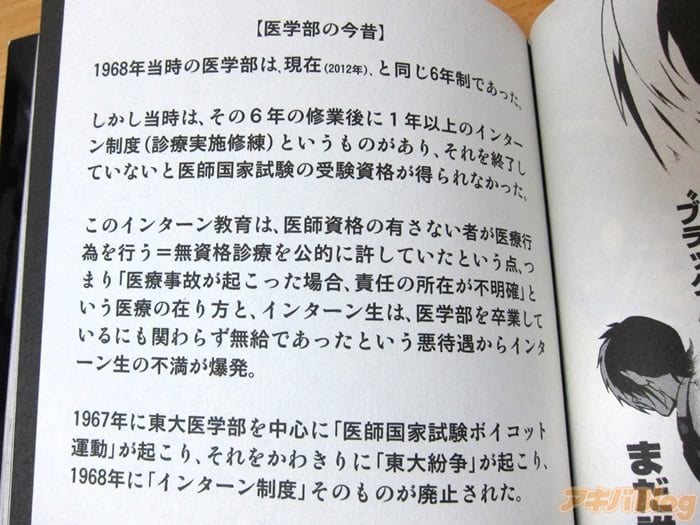 【医学部の今昔】
1968年当時の医学部は、現在(2012年)、と同じ6年制であった。
しかし当時は、その6年の修業後に1年以上のインター
ン制度(診療実施修練)というものがあり、それを終了し
ていないと医師国家試験の受験資格が得られなかった。
このインターン教育は、医師資格の有さない者が医療行
為を行う=無資格診療を公的に許していたという点、つ
まり「医療事故が起こった場合、責任の所在が不明確」と
いう医療の在り方と、インターン生は、医学部を卒業して
いるにも関わらず無給であったという悪待遇からインタ
ーン生の不満が爆発。
1967年に東大医学部を中心に「医師国家試験ボイコット
運動」が起こり、それをかわきりに「東大紛争」が起こり、
1968年に「インターン制度」そのものが廃止された。
ブラック
まだ
アキバBlog